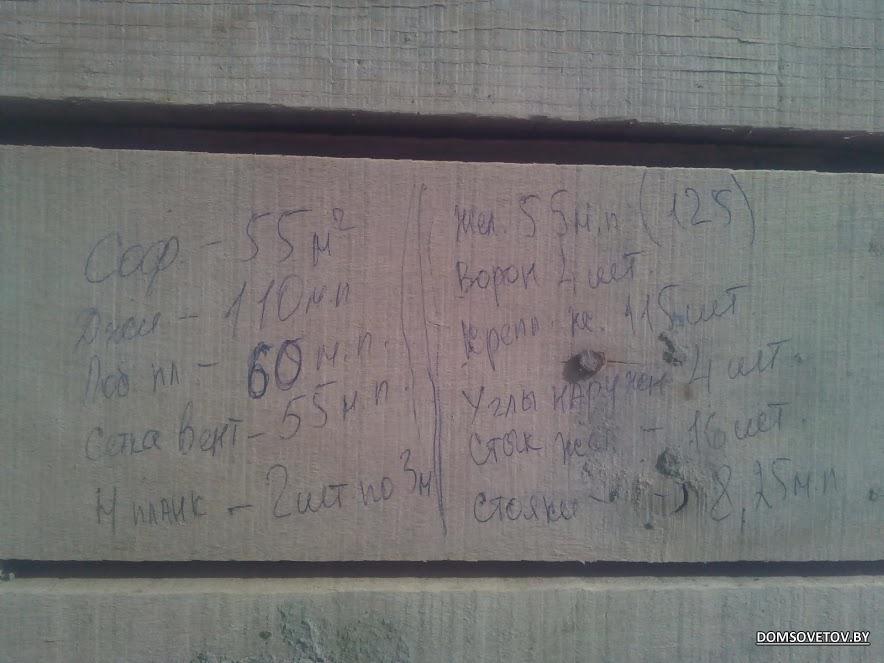 Соф. - 55 м²
Джи - 110 м.п
Лоб. пл - 60 м.п.
Сетка вент - 55 м.п.
Н планк - 2 шт по 3м
Жел. 55 м.п (125)
Ворон 4 шт.
Крепл. же. 115 шт
Углы наружн 4 шт.
Стык жел - 16 шт.
Стояки - 8,25 м.п
DOMSOVETOV.BY